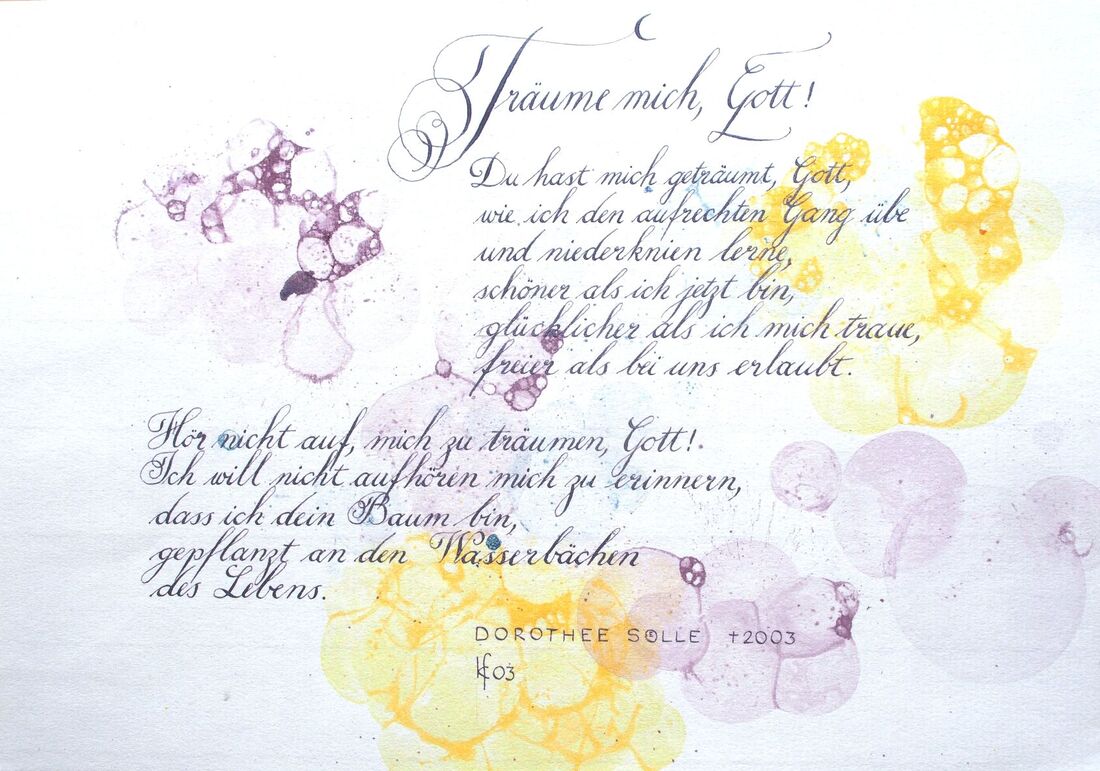 Träume mich, Gott!
Du hast mich geträumt, Gott,
wie ich den aufrechten Gang übe
und niederknien lerne,
schöner als ich jetzt bin,
glücklicher als ich mich traue,
freier als bei uns erlaubt.
Hör nicht auf, mich zu träumen, Gott!
Ich will nicht aufhören mich zu erinnern,
dass ich dein Baum bin,
gepflanzt an den Wasserbächen
des Lebens.
DOROTHEE SÖLLE †2003
03